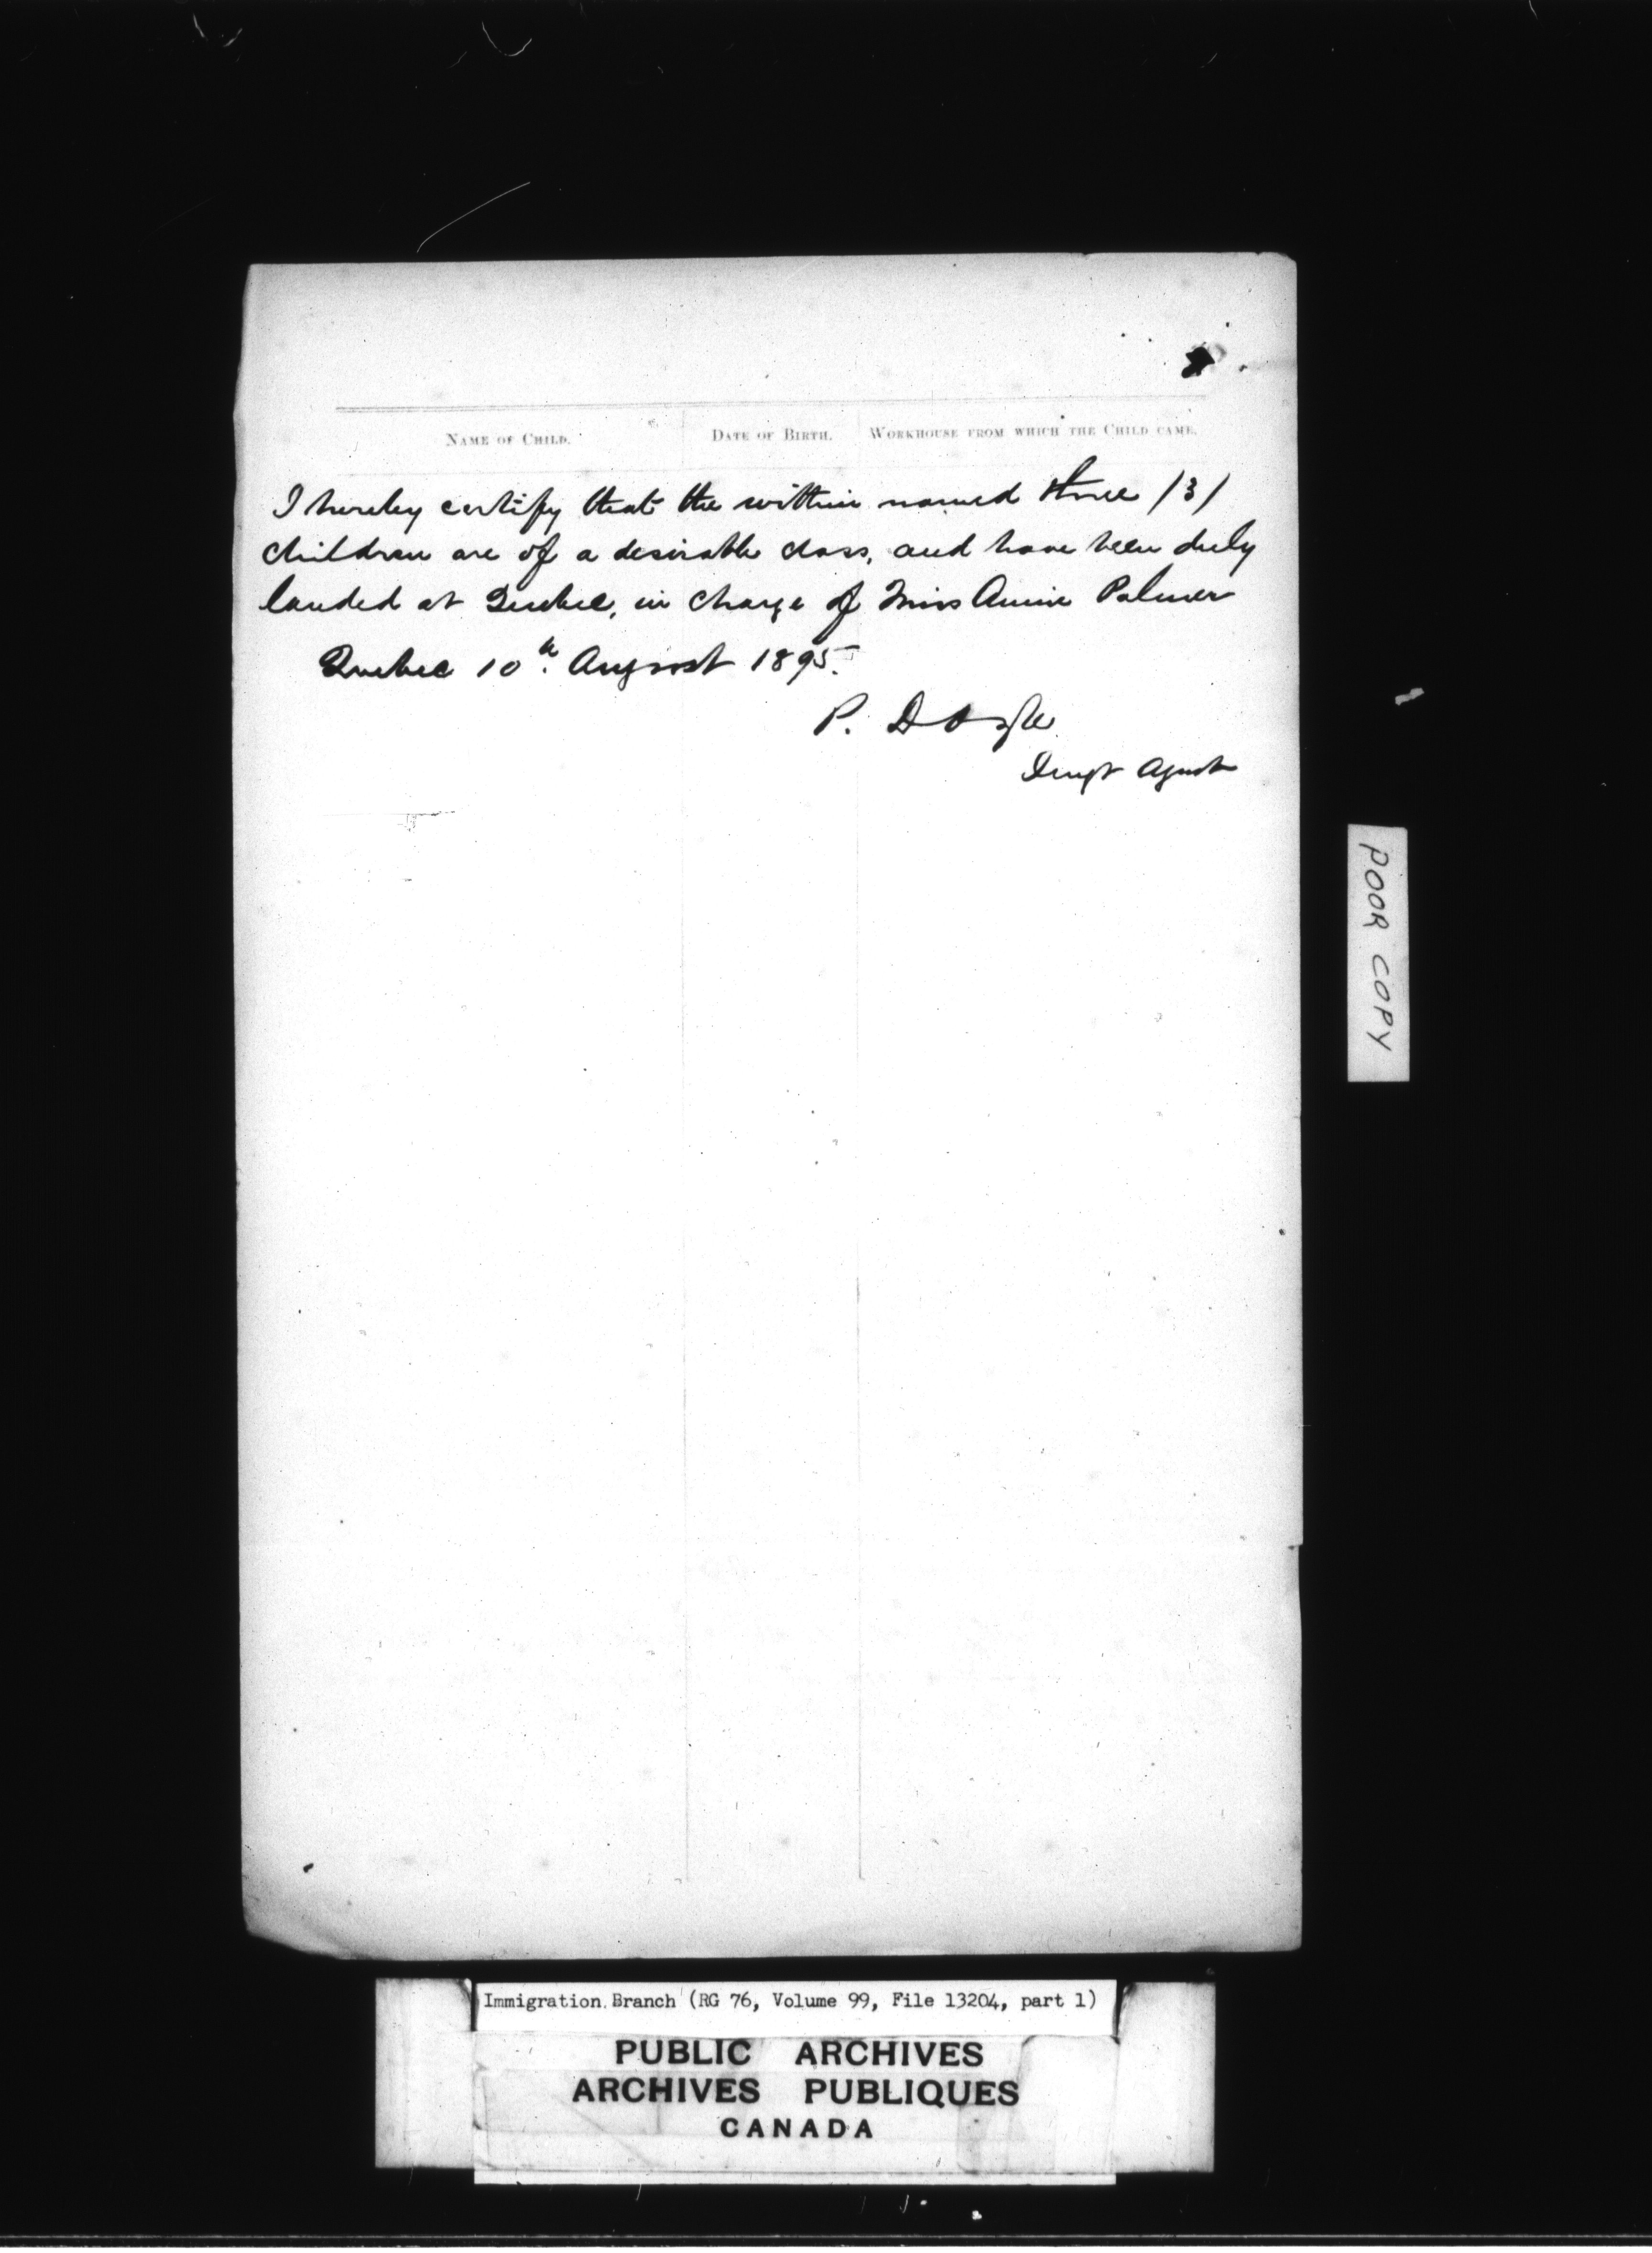 NAME OF CHILD. DATE OF BIRTH. WORKHOUSE FROM WHICH THE CHILD CAME.
I hereby certify that the within named three /3/
children are of a desirable class, and have been duly
landed at Quebec, in charge of Miss Annie Palmer
Quebec 10th. August 1895.
P. Doyle
Immgt Agent
POOR COPY
Immigration Branch (RG 76, Volume 99, File 13204, part 1)
PUBLIC ARCHIVES
ARCHIVES PUBLIQUES
CANADA